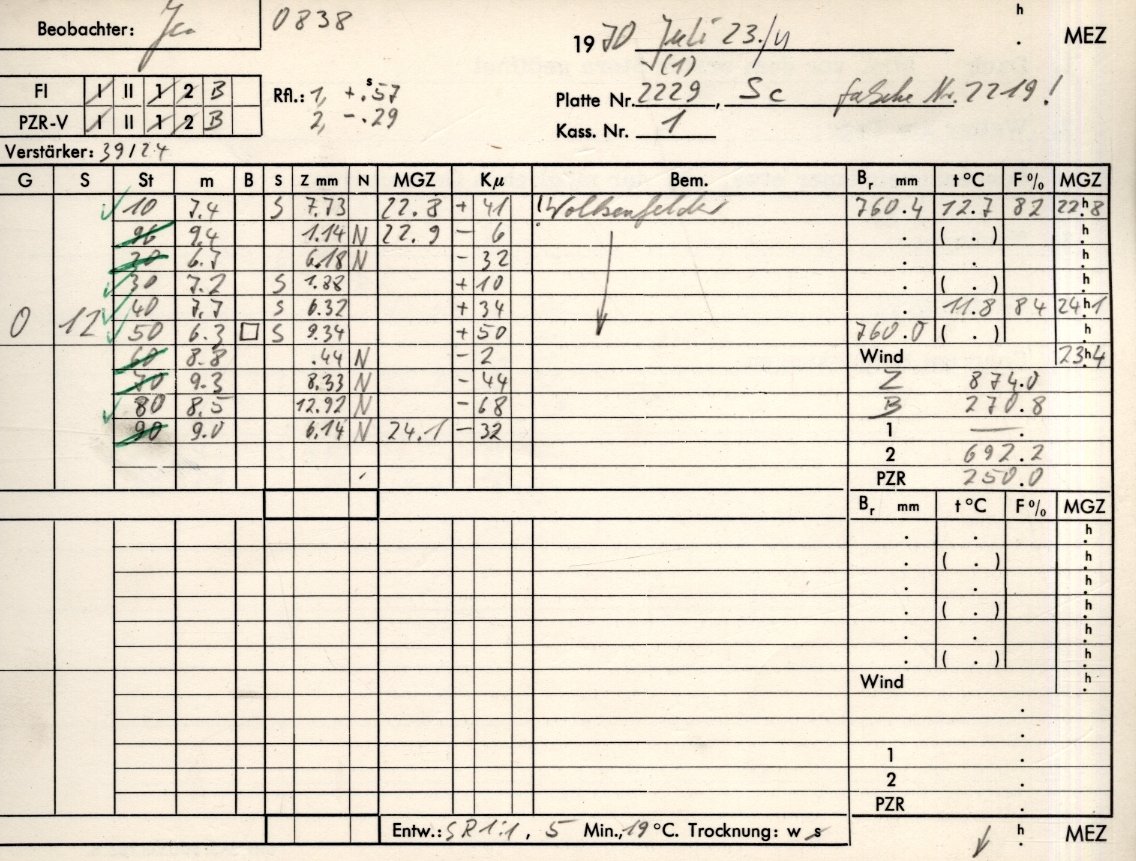 Beobachter: Je. 0838
h
1970 Juli 23./24 . MEZ
(1)
FI I II 1 2 B Rfl.: 1, +.ˢ57
Platte Nr. 2229, Sc falsche Nr. 2219!
PZR-V I II 1 2 B 2, -.29
Kass. Nr. 1
Verstärker: 39/24
G S St m B S Z mm N MGZ Kμ Bem. Bᵣ mm t °C F % MGZ
10 7.4 S 7.73 22.8 + 41 Wolkenfelder 760.4 12.7 82 22ʰ.8
9.4 1.14 N 22.9 - 6 . ( . ) h.
20 6.7 6.18 N - 32 . . h.
30 7.2 S 1.88 + 10 . ( . ) h.
40 7.7 S 6.32 + 34 . 11.8 84 24ʰ.1
0 12 50 6.3 □ S 9.34 + 50 760.0 ( . ) h.
60 8.8 .44 N - 2 Wind 23ʰ.4
70 9.3 8.33 N - 44 Z 874.0
80 8.5 12.92 N - 68 B 270.8
90 9.0 6.14 N 24.1 - 32 1 — .
2 692.2
PZR 250.0
Bᵣ mm t °C F % MGZ
. . h.
. ( . ) h.
. . h.
. ( . ) h.
. . h.
. ( . ) h.
Wind h.
.
.
1 .
2 .
PZR .
Entw.: SR 1:1, 5 Min., 19 °C. Trocknung: w s h. MEZ